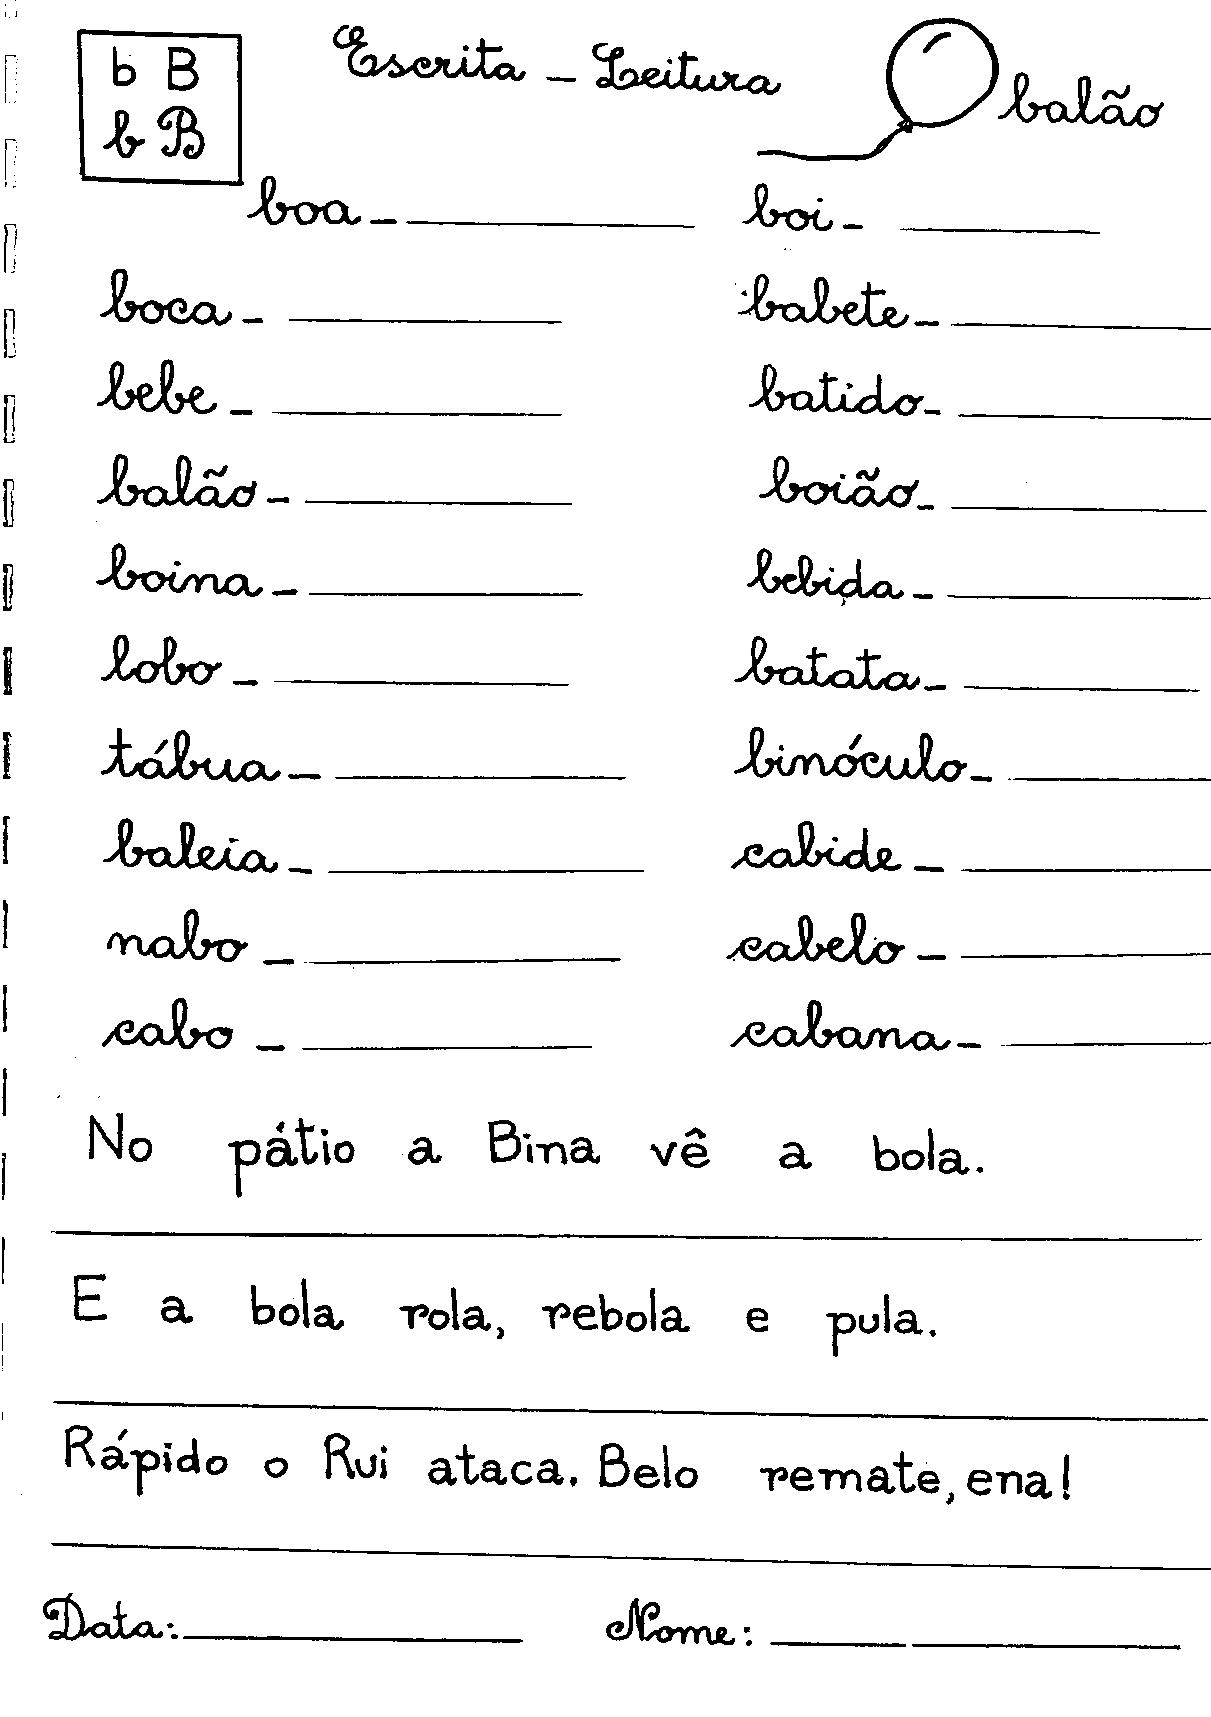 b B
b B
Escrita - Leitura
balão
boa - boi -
boca - babete -
bebe - batido -
balão - boião -
boina - bebida -
lobo - batata -
tábua - binóculo -
baleia - cabide -
nabo - cabelo -
cabo - cabana -
No pátio a Bina vê a bola.
E a bola rola, rebola e pula.
Rápido o Rui ataca. Belo remate, ena!
Data: Nome: